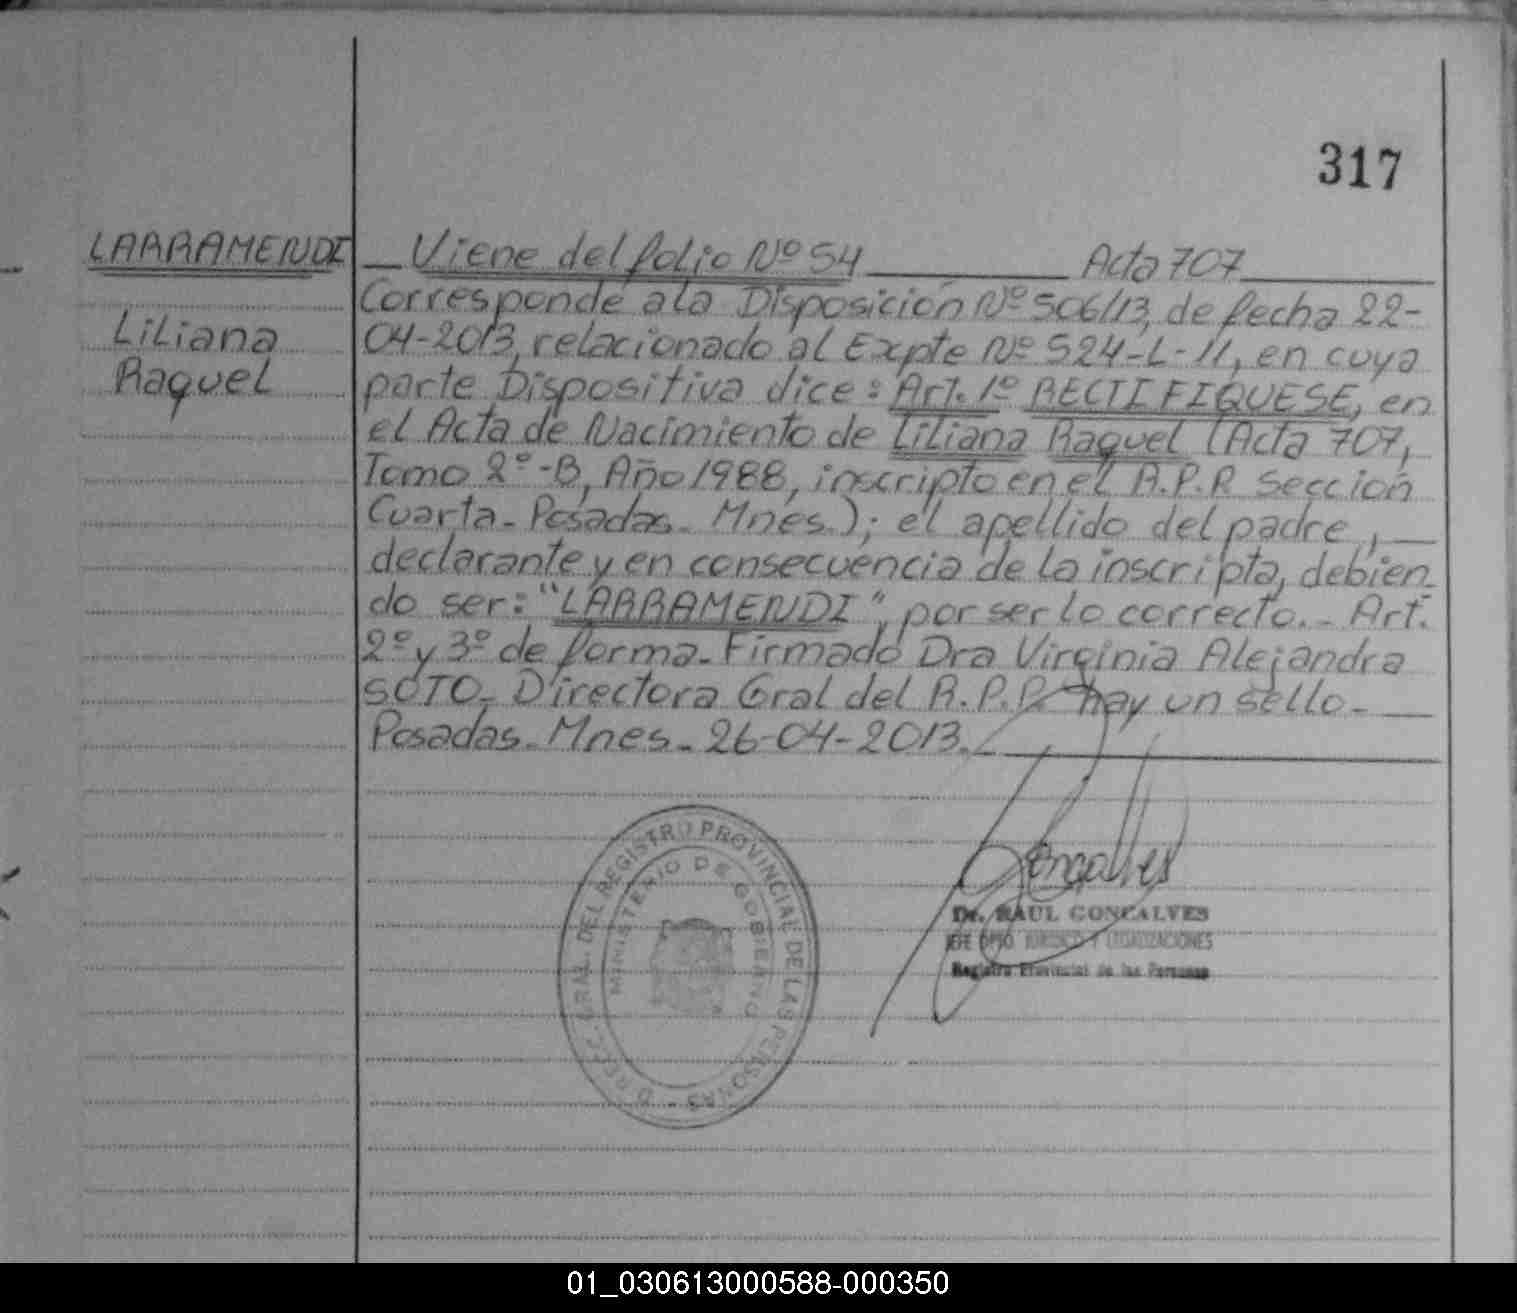 317
LARRAMENDI
Liliana
Raquel
Viene del folio Nº 54 Acta 707
Corresponde a la Disposición Nº 506/13, de fecha 22-
04-2013, relacionado al Expte Nº 524-L-11, en cuya
parte Dispositiva dice: Art. 1º RECTIFIQUESE, en
el Acta de Nacimiento de Liliana Raquel (Acta 707,
Tomo 2º-B, Año 1988, inscripto en el R.P.P. Sección
Cuarta- Posadas- Mnes.); el apellido del padre,
declarante y en consecuencia de la inscripta, debien-
do ser: "LARRAMENDI", por ser lo correcto.- Art.
2º y 3º de forma- Firmado Dra Virginia Alejandra
SOTO- Directora Gral del R.P.P. hay un sello-
Posadas- Mnes- 26-04-2013.-
DIREC. GRAL. DEL REGISTRO PROVINCIAL DE LAS PERSONAS -
MINISTERIO DE GOBIERNO
Goncalves
Dr. RAUL GONCALVES
JEFE DPTO JURIDICO Y LEGALIZACIONES
Registro Provincial de las Personas
01_030613000588-000350